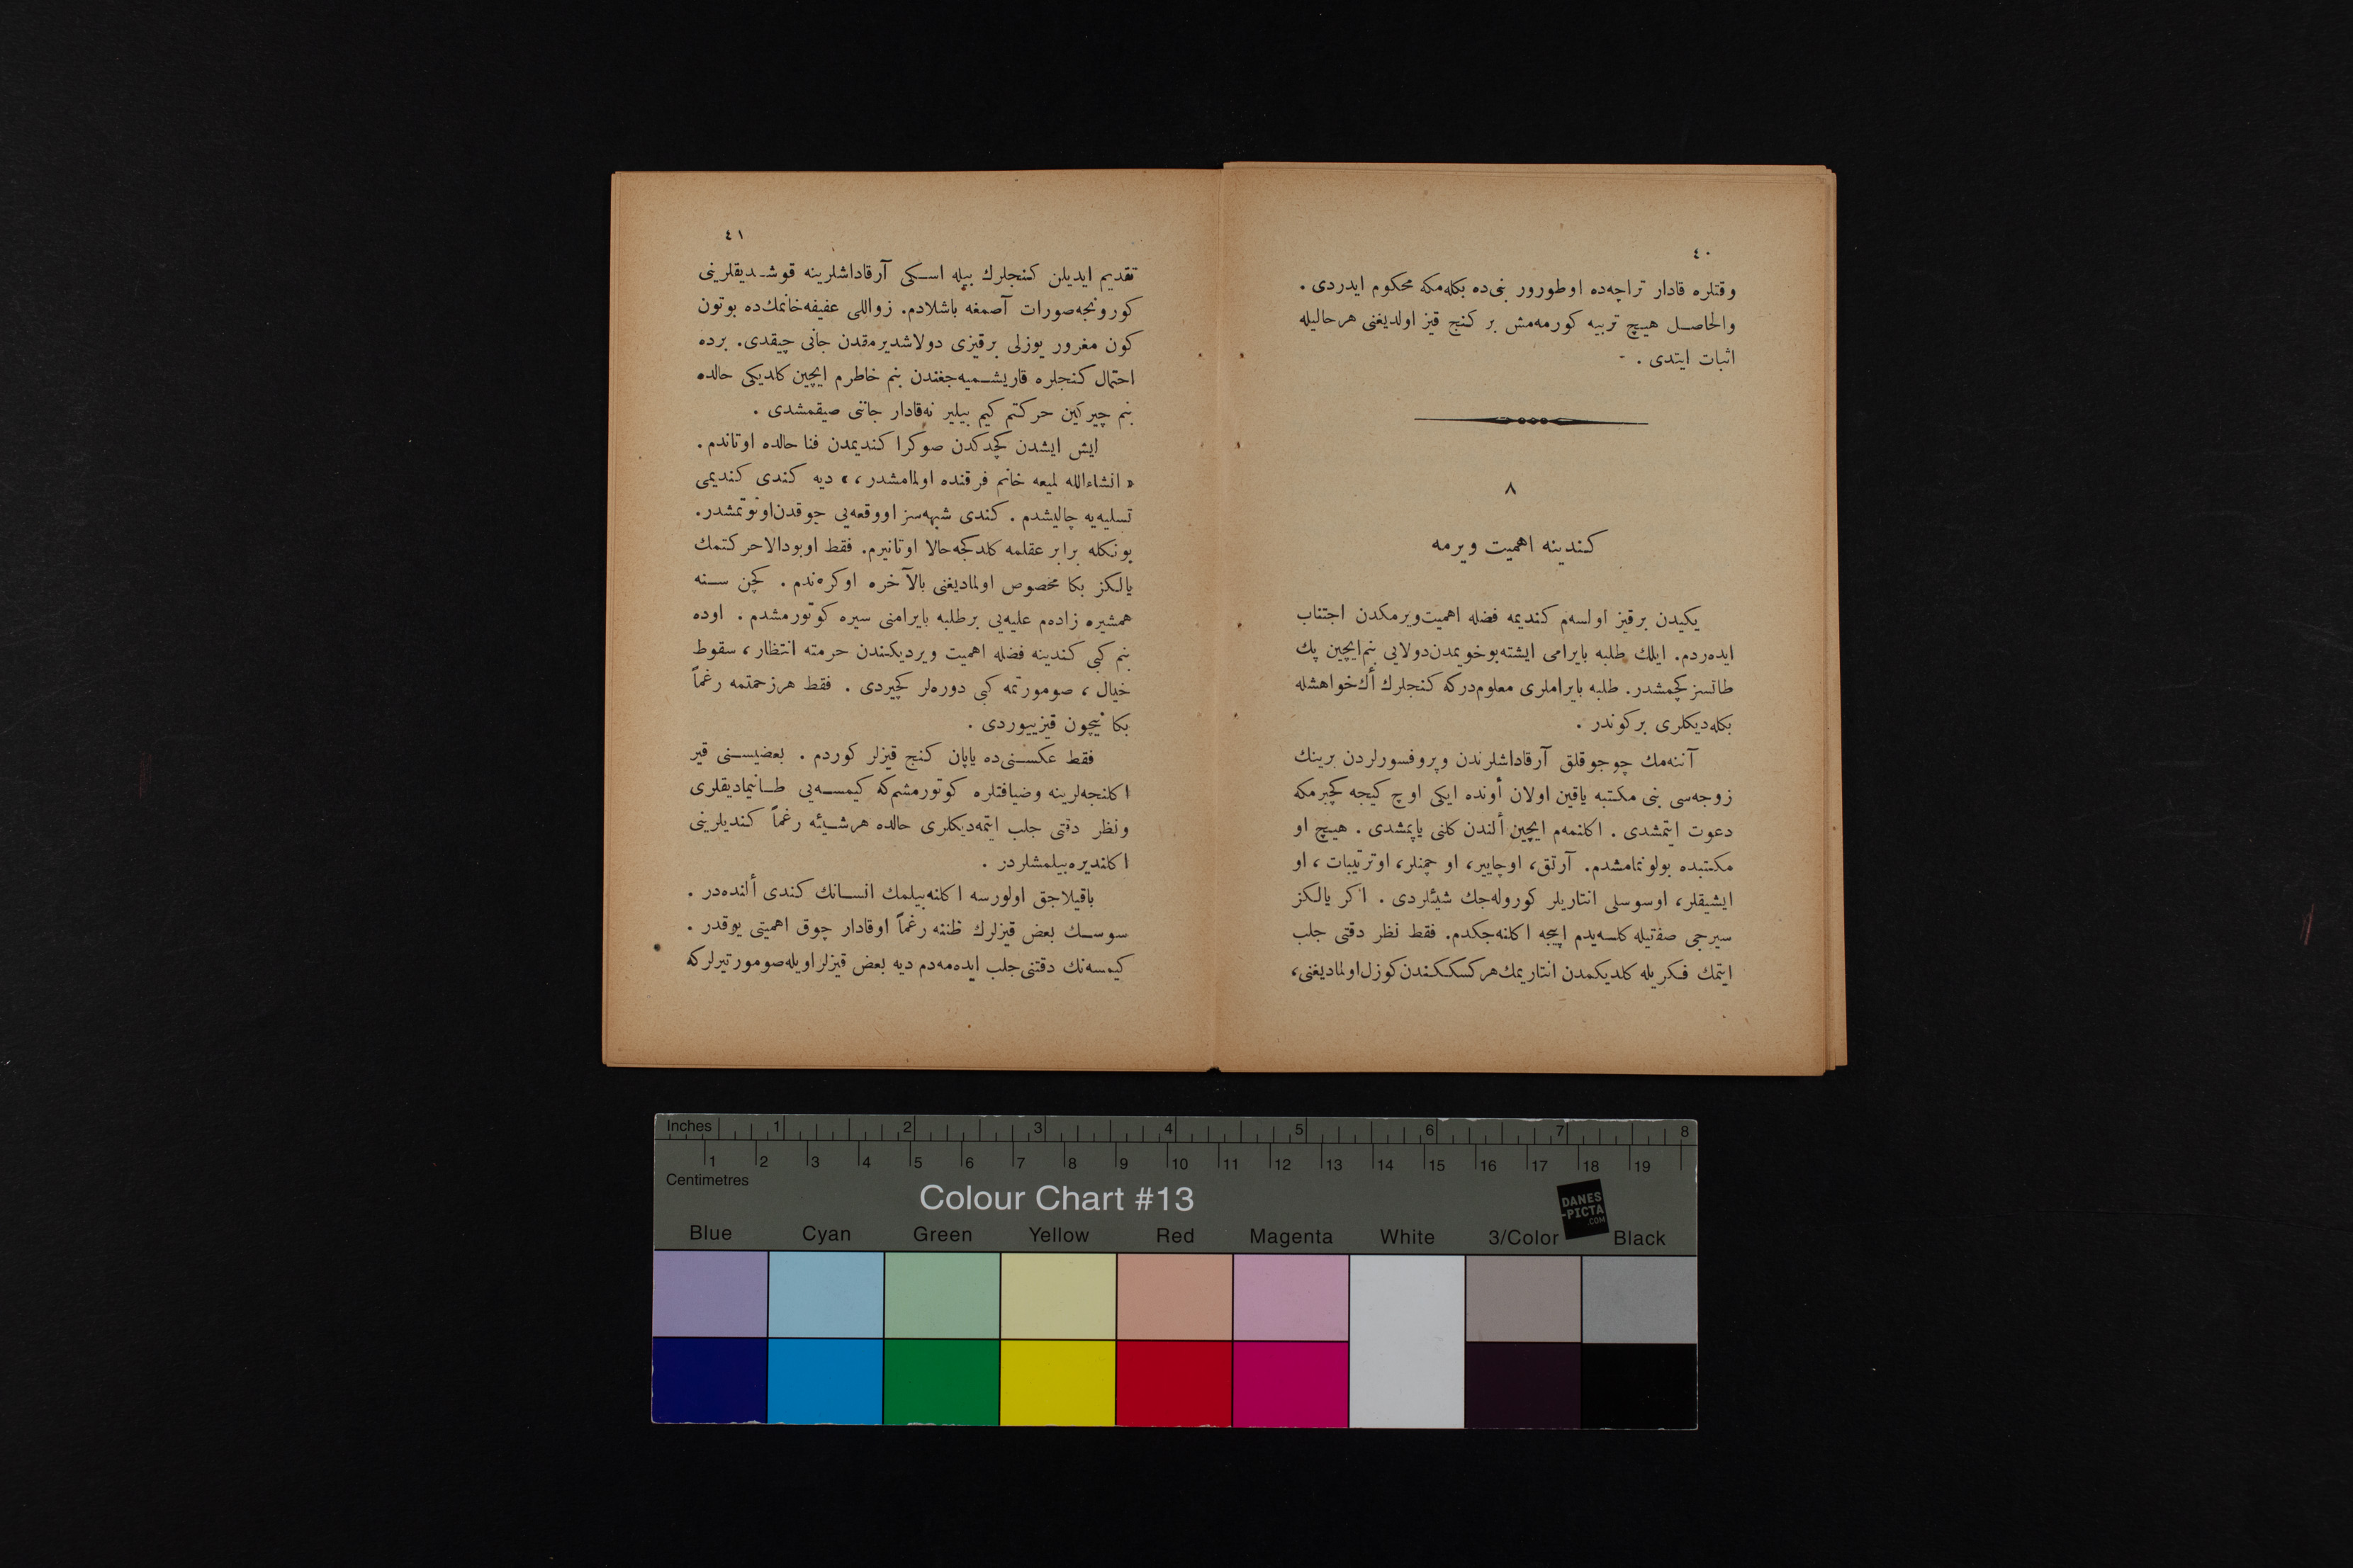 ٤٠
وقتلره قادار تراچه‌ده اوطورور بنی‌ده بكله‌مكه محكوم ایدردی .
والحاصل هیچ تربیه كورمه‌مش بر كنج قیز اولدیغنی هرحالیله
اثبات ایتدی .
٨
كندینه اهمیت ویرمه
یكیدن برقیز اولسه‌م كندیمه فضله اهمیت‌ویرمكدن اجتناب
ایده‌ردم. ایلك طلبه بایرامی ایشته‌بوخویمدن‌دولایی بنم‌ایچین پك
طاتسز كچمشدر. طلبه بایراملری معلوم‌دركه كنجلرك أك‌خواهشله
بكله‌دیكلری بركوندر .
آننه‌مك چوجوقلق آرقاداشلرندن وپروفسورلردن برینك
زوجه‌سی بنی مكتبه یاقین اولان أونده ایكی اوچ كیجه كچیرمكه
دعوت ایتمشدی . اكلنمه‌م ایچین ألندن كلنی یاپمشدی . هیچ او
مكتبده بولونمامشدم. آرتق، اوچاییر، او چمنلر، اوترتیبات ، او
ایشیقلر، اوسوسلی انتاریلر كوروله‌جك شیئلردی . اكر یالكز
سیرجی صفتیله كلسه‌یدم اییجه اكلنه‌جكدم. فقط نظر دقتی جلب
ایتمك فكریله كلدیكمدن انتاریمك‌هركسككندن‌كوزل‌اولمادیغنی،
٤١
تقدیم ایدیلن كنجلرك بیله اسكی آرقاداشلرینه قوشدیقلرینی
كورونجه‌صورات آصمغه باشلادم. زواللی عفیفه‌خانمك‌ده بوتون
كون مغرور یوزلی برقیزی دولاشدیرمقدن جانی چیقدی. برده
احتمال كنجلره قاریشمیه‌جغندن بنم خاطرم ایچین كلدیكی حالده
بنم چیركین حركتم كیم بیلیر نه‌قادار جاننی صیقمشدی .
ایش ایشدن كچدكدن صوكرا كندیمدن فنا حالده اوتاندم .
« انشاءالله لمیعه خانم فرقنده اولمامشدر ، » دیه كندی كندیمی
تسلیه‌یه چالیشدم . كندی شبهه‌سز اووقعه‌یی چوقدن‌اونوتمشدر.
بونكله برابر عقلمه كلدكجه‌حالا اوتانیرم. فقط اوبودالاحركتمك
یالكز بكا مخصوص اولمادیغنی بالآخره اوكره‌ندم . كچن سنه
همشیره زاده‌م علیه‌یی برطلبه بایرامنی سیره كوتورمشدم . اوده
بنم كبی كندینه فضله اهمیت ویردیكندن حرمته انتظار ، سقوط
خیال ، صومورتمه كبی دوره‌لر كچیردی . فقط هرزحمتمه رغماً
بكا نیچون قیزییوردی .
فقط عكسنی‌ده یاپان كنج قیزلر كوردم . بعضیسنی قیر
اكلنجه‌لرینه وضیافتلره كوتورمشم‌كه كیمسه‌یی طانیمادیقلری
ونظر دقتی جلب ایتمه‌دیكلری حالده هرشیئه رغماً كندیلرینی
اكلندیره‌بیلمشلردر .
باقیلاجق اولورسه اكلنه‌بیلمك انسانك كندی ألنده‌در .
سوسك بعض قیزلرك ظننه رغماً اوقادار چوق اهمیتی یوقدر .
كیمسه‌نك دقتنی‌جلب ایده‌مه‌دم دیه بعض قیزلراویله‌صومورتیرلركه
Inches 1 2 3 4 5 6 7 8
1 2 3 4 5 6 7 8 9 10 11 12 13 14 15 16 17 18 19
Centimetres
Colour Chart #13
DANES
-PICTA
.COM
Blue Cyan Green Yellow Red Magenta White 3/Color Black